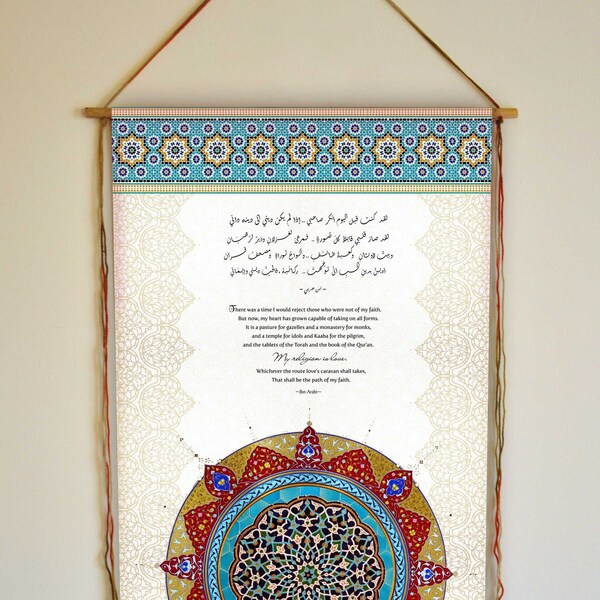 لقد كنت قبل اليوم انكر صاحبي .. إذا لم يكن ديني إلى دينه داني
لقد صار قلبي قابلا كل صورة .. فمرعى لغزلان ودير لرهبان
وبيت لأوثان وكعبة طائف .. وألواح توراة ومصحف قرآن
أدين بدين الحب أنى توجهت .. ركائبه فالحب ديني وإيماني
~ ابن عربي ~
There was a time I would reject those who were not of my faith.
But now, my heart has grown capable of taking on all forms.
It is a pasture for gazelles and a monastery for monks,
and a temple for idols and Kaaba for the pilgrim,
and the tablets of the Torah and the book of the Qur'an.
My religion is love.
Whichever the route love's caravan shall takes,
That shall be the path of my faith.
~Ibn Arabi~